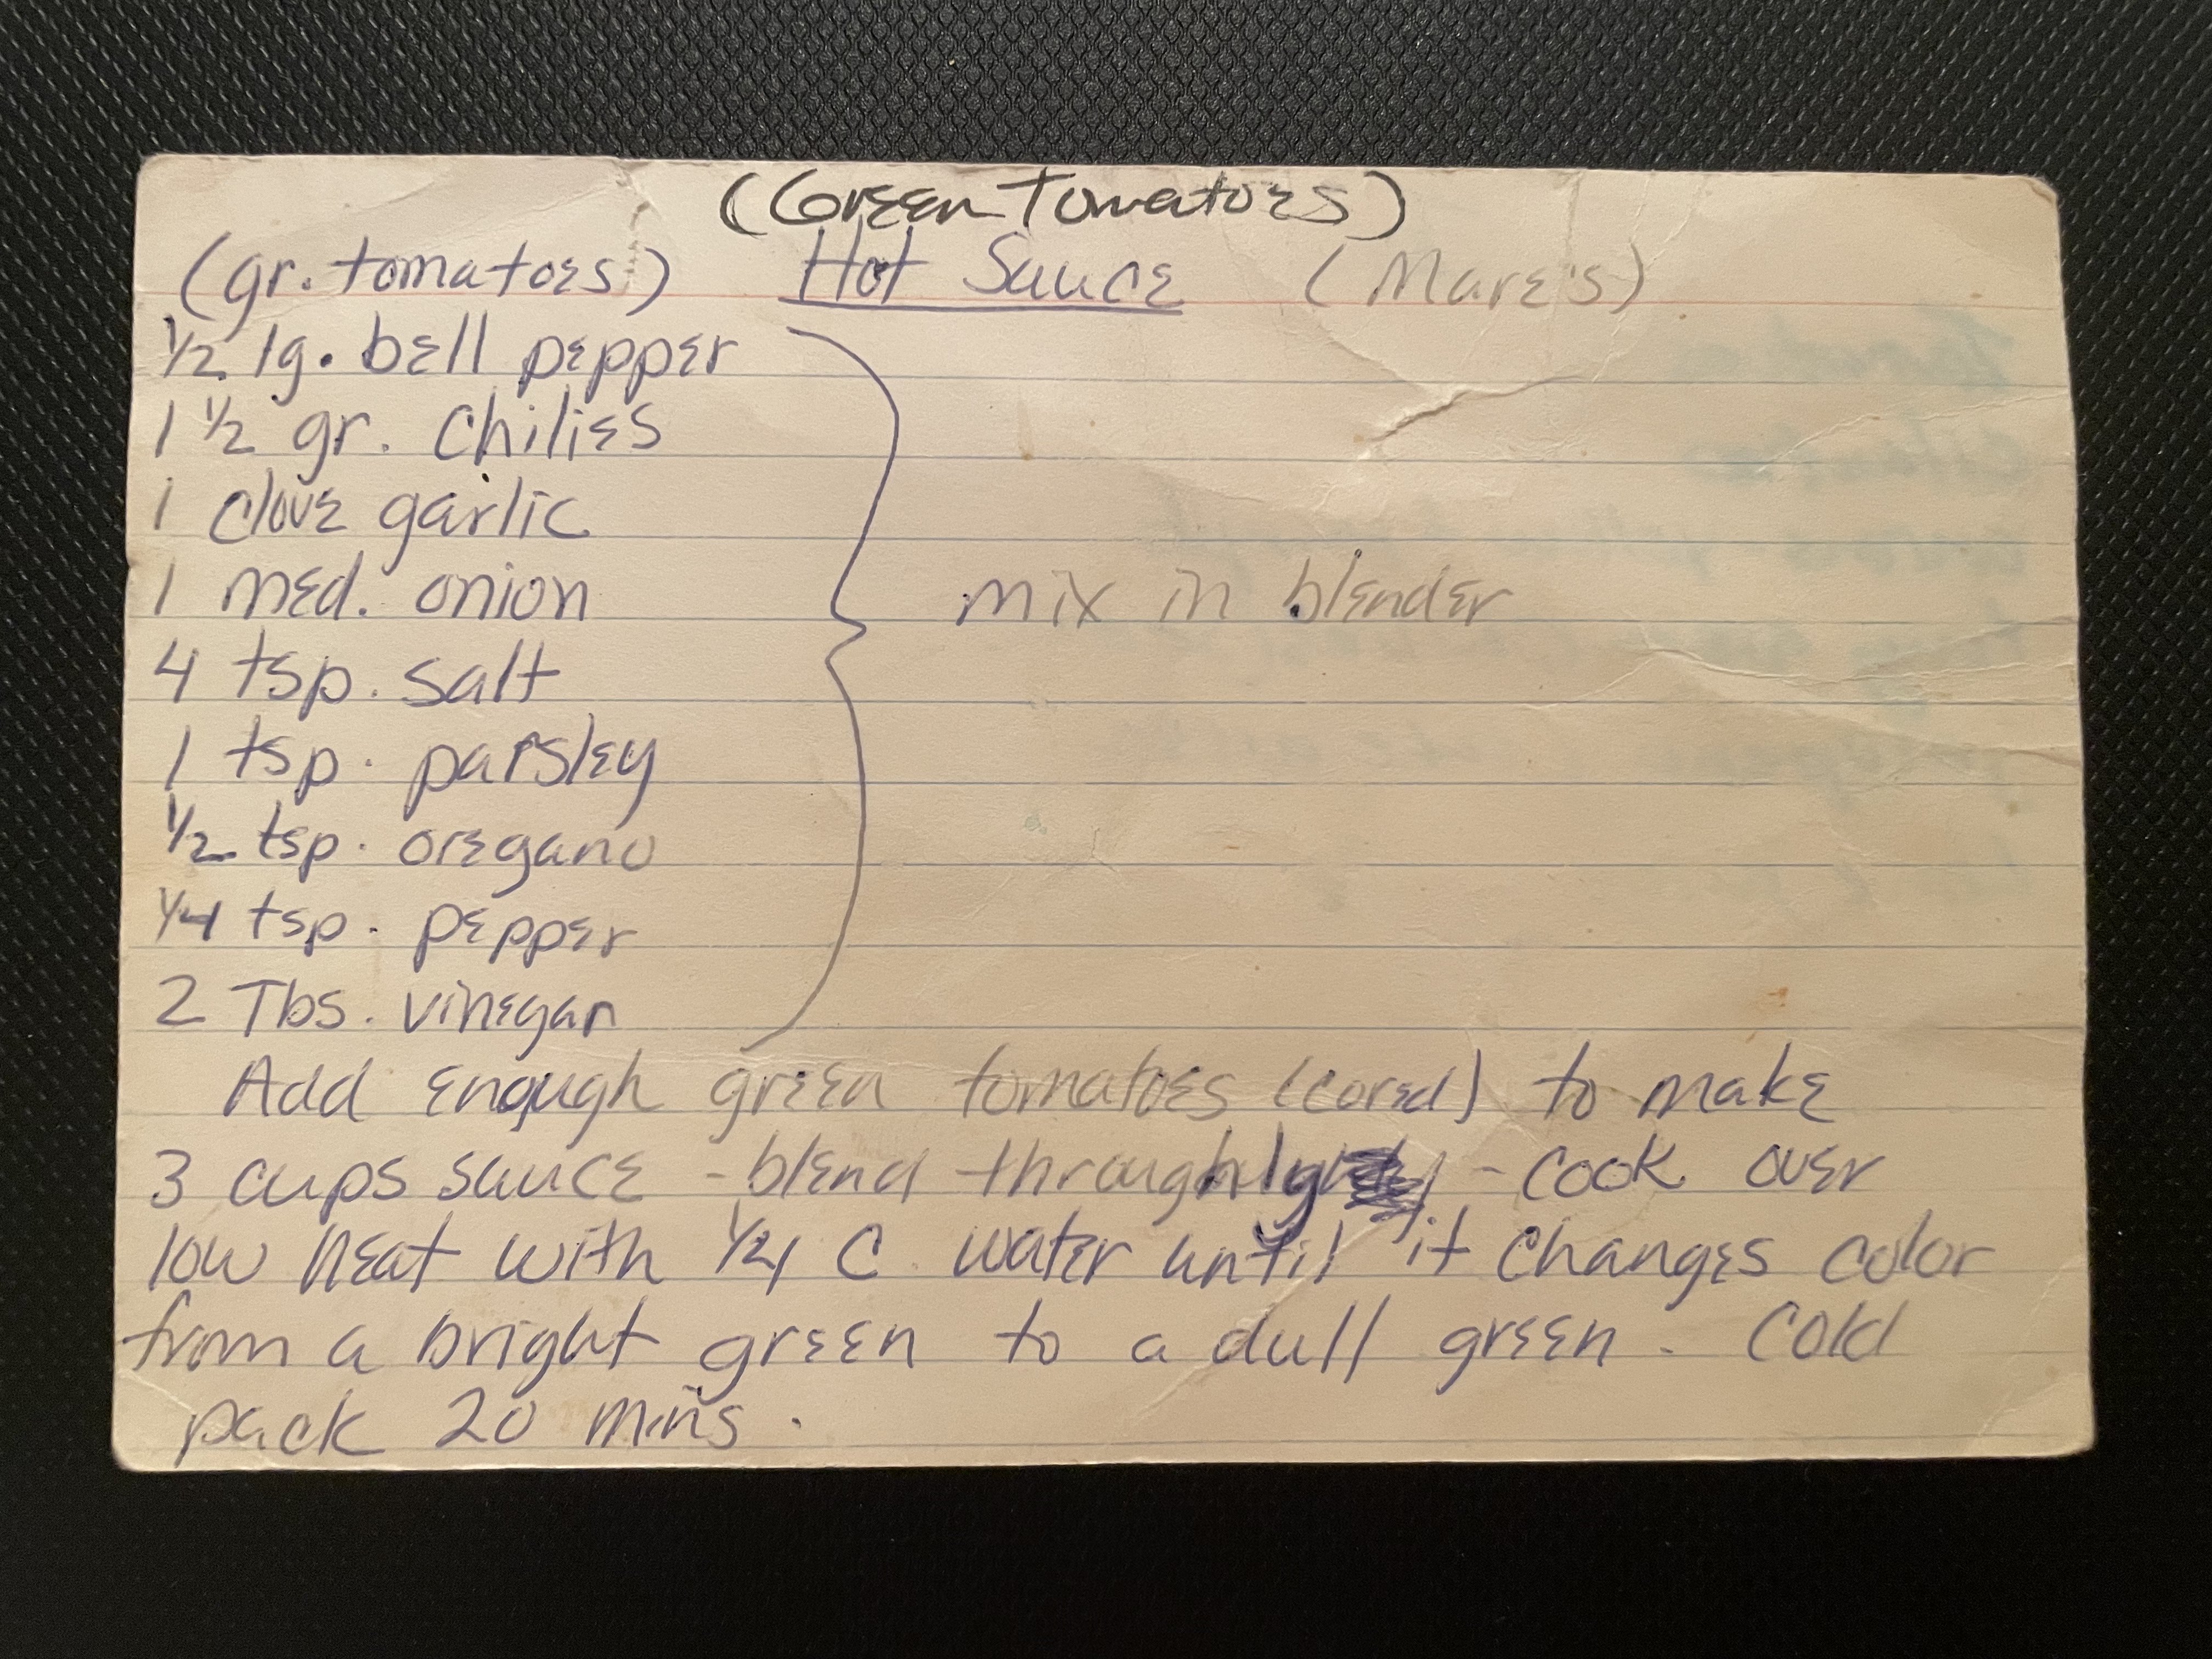 (Green Tomatoes)
(gr. tomatoes) Hot Sauce (Mare's)
1/2 lg. bell pepper
1 1/2 gr. chilies
1 clove garlic
1 med. onion
mix in blender
4 tsp. salt
1 tsp. parsley
1/2 tsp. oregano
1/4 tsp. pepper
2 Tbs. vinegar
Add enough green tomatoes (cored) to make
3 cups sauce - blend throughly - cook over
low heat with 1/4 C. water until it changes color
from a bright green to a dull green. Cold
pack 20 mins.